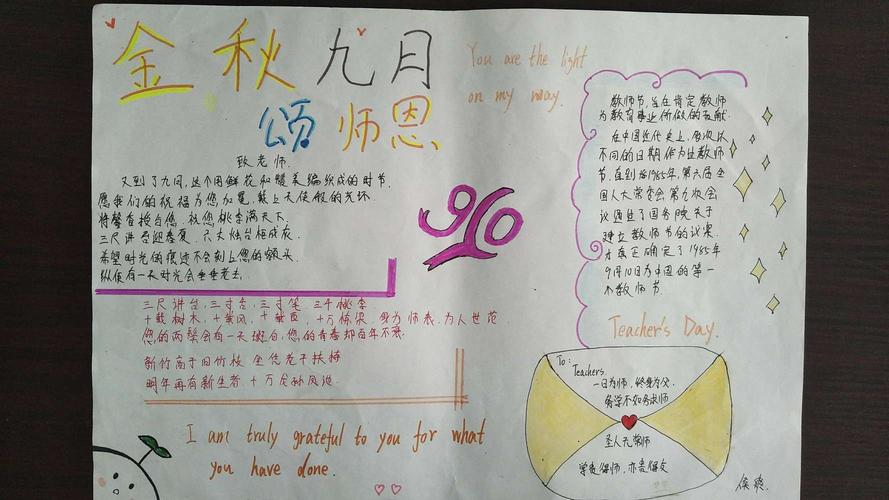 金秋九月
颂师恩
You are the light
on my way.
致老师.
又到了九月,这个用鲜花和赞美编织成的时节.
愿我们的祝福为您加冕,戴上天使般的光环.
将馨香授自您,祝您桃李满天下.
三尺讲台迎春夏,
希望时光的痕迹不会刻上您的额头.
纵使有一天时光会垂垂老去,
三尺讲台,三寸舌,三寸笔,三千桃李
十载树木,十载风,十载雨,十万栋梁,身为师表,为人世范
您的两鬓会有一天斑白,您的青春却百年不衰.
新竹高于旧竹枝 全凭老干扶持
明年再有新生者 十万
I am truly grateful to you for what
you have done.
910
教师节,旨在肯定教师
为教育事业所做的贡献.
在中国近代史上,多次以
不同的日期作为过教师
节,直到1985年,第六届全
国人大常委会第九次会
议通过了国务院关于
建立教师节的议案.
才真正确定了1985年
9月10日为中国的第一
个教师节.
Teacher's Day.
To:
Teachers.
一日为师,终身为父.
务学不如务求师
圣人无常师
学贵得师,亦贵得友